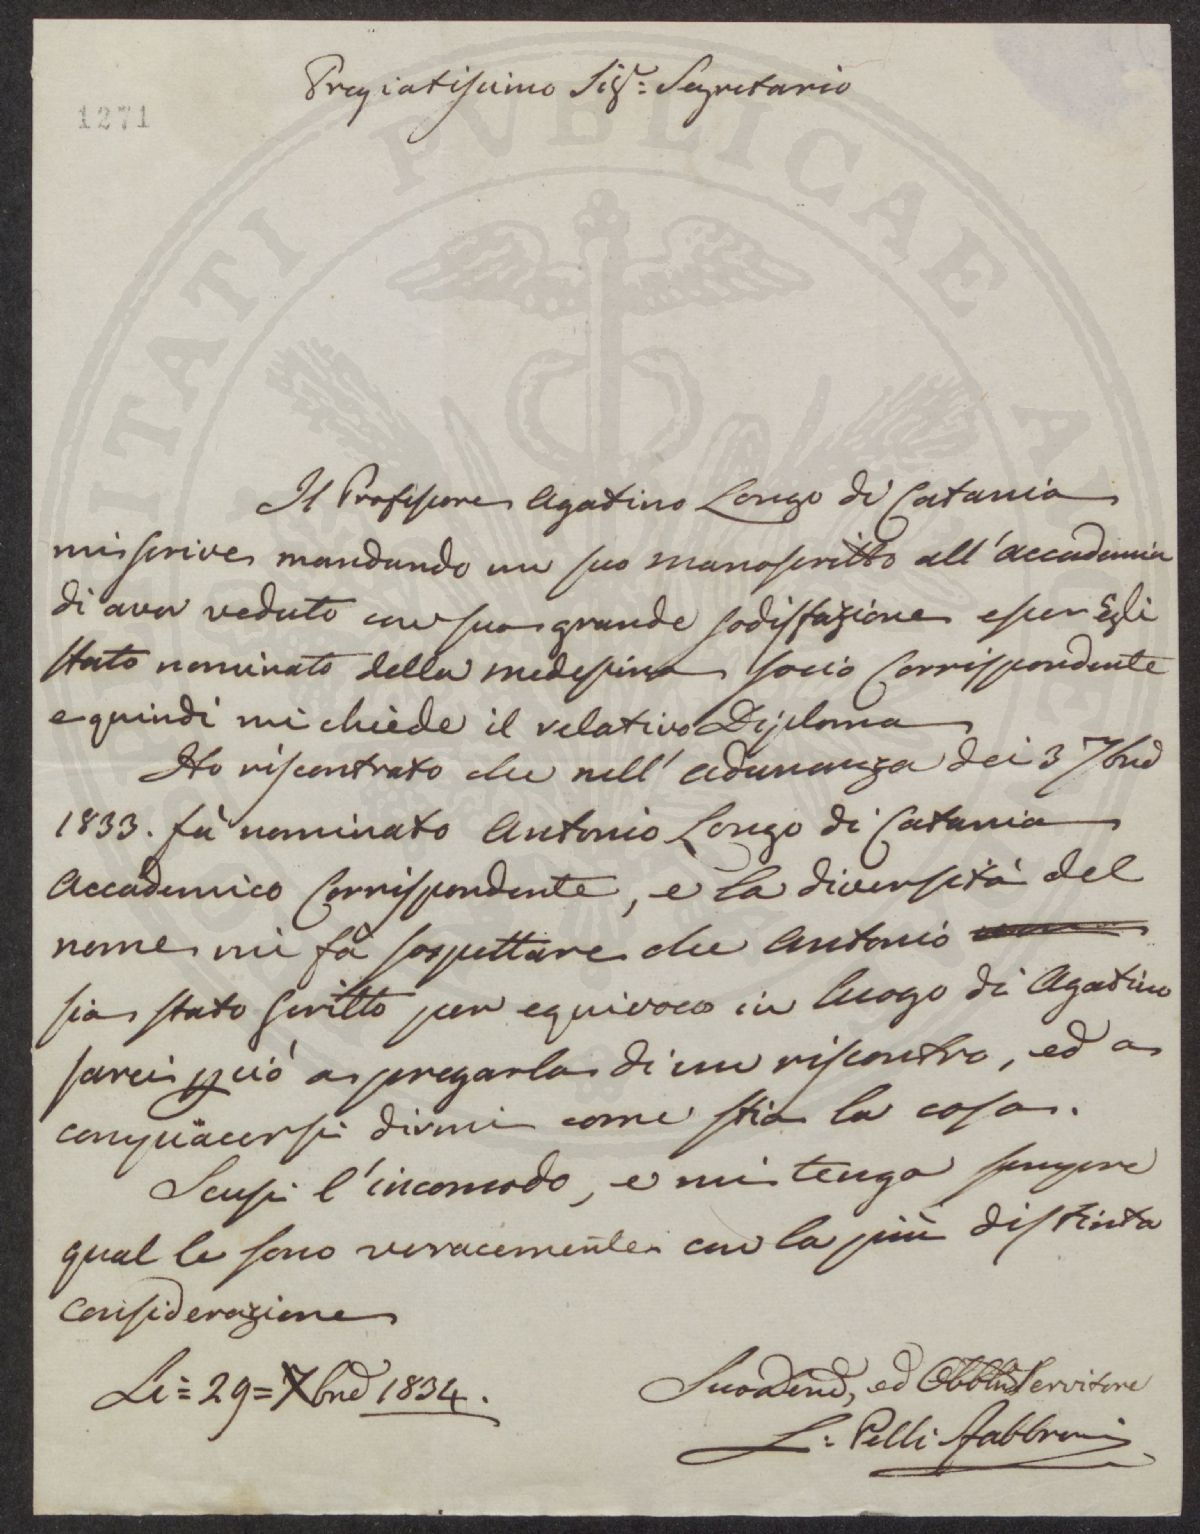 Pregiatissimo Sig.r Segretario
1271
Il Professore Agatino Longo di Catania
mi scrive mandando un suo manoscritto all'Accademia
di aver veduto con sua grande sodisfazione esser Egli
stato nominato della medesima socio Corrispondente
e quindi mi chiede il relativo Diploma
Ho riscontrato che nell'adunanza dei 3 7bre
1833. fù nominato Antonio Longo di Catania
Accademico Corrispondente, e la diversità del
nome mi fà sospettare che Antonio
sia stato scritto per equivoco in luogo di Agatino
sarei perciò a pregarla di un riscontro, ed a
compiacersi dirmi come stia la cosa.
Scusi l'incomodo, e mi tenga sempre
qual le sono veracemente con la più distinta
considerazione
Li = 29 = Xbre 1834.
Suo Dev.o, ed Obbl.o Servitore
L: Pelli Fabbroni